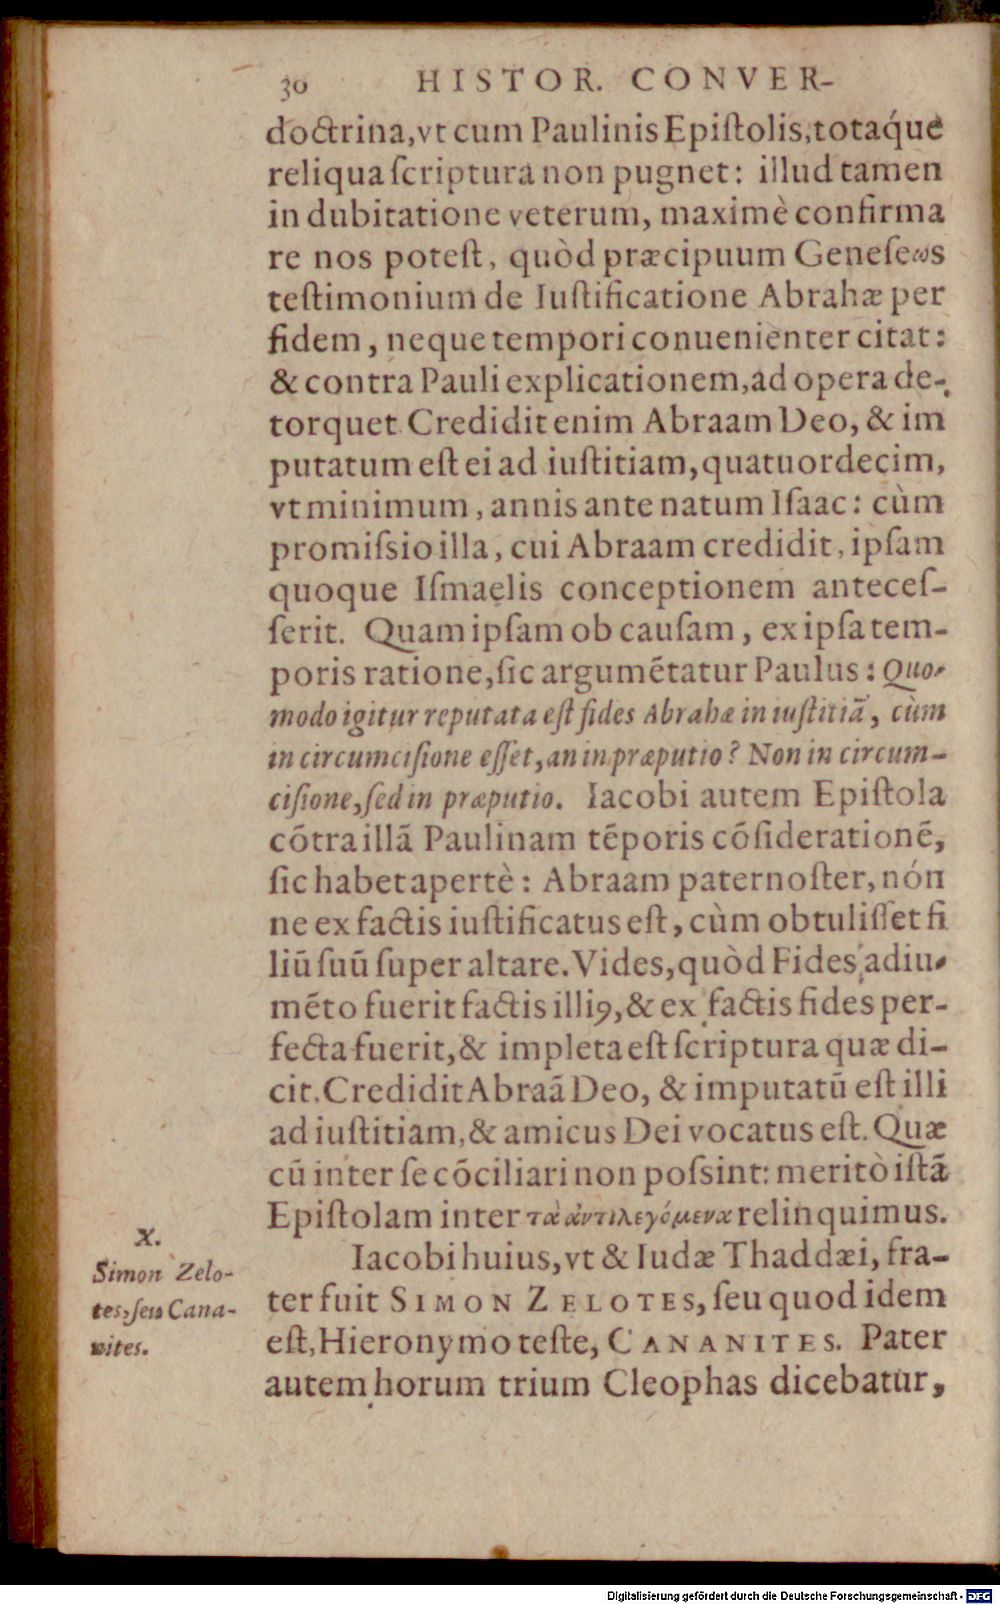 30 HISTOR. CONVER-
doctrina, vt cum Paulinis Epiſtolis, totaq́ue
reliqua ſcriptura non pugnet: illud tamen
in dubitatione veterum, maximè confirma
re nos poteſt, quòd præcipuum Geneſeωs
teſtimonium de Iuſtificatione Abrahæ per
fidem, neque tempori conuenienter citat:
& contra Pauli explicationem, ad opera de-
torquet. Credidit enim Abraam Deo, & im
putatum eſt ei ad iuſtitiam, quatuordecim,
vt minimum, annis ante natum Iſaac: cùm
promiſsio illa, cui Abraam credidit, ipſam
quoque Iſmaelis conceptionem anteceſ-
ſerit. Quam ipſam ob cauſam, ex ipſa tem-
poris ratione, ſic argumẽtatur Paulus: Quo-
modo igitur reputata eſt fides Abrahæ in iuſtitiã, cùm
in circumciſione eſſet, an in præputio? Non in circum-
ciſione, ſed in præputio. Iacobi autem Epiſtola
cõtra illã Paulinam tẽporis cõſiderationẽ,
ſic habet apertè: Abraam pater noſter, nón
ne ex factis iuſtificatus eſt, cùm obtuliſſet fi
liũ ſuũ ſuper altare. Vides, quòd Fides adiu-
mẽto fuerit factis illiꝰ, & ex factis fides per-
fecta fuerit, & impleta eſt ſcriptura quæ di-
cit. Credidit Abraã Deo, & imputatũ eſt illi
ad iuſtitiam, & amicus Dei vocatus eſt. Quæ
cũ inter ſe cõciliari non poſsint: meritò iſtã
Epiſtolam inter τὰ ἀντιλεγόμενα relinquimus.
X.
Simon Zelo-
tes, ſeu Cana-
nites.
Iacobi huius, vt & Iudæ Thaddæi, fra-
ter fuit SIMON ZELOTES, ſeu quod idem
eſt, Hieronymo teſte, CANANITES. Pater
autem horum trium Cleophas dicebatur,
Digitalisierung gefördert durch die Deutsche Forschungsgemeinschaft - DFG